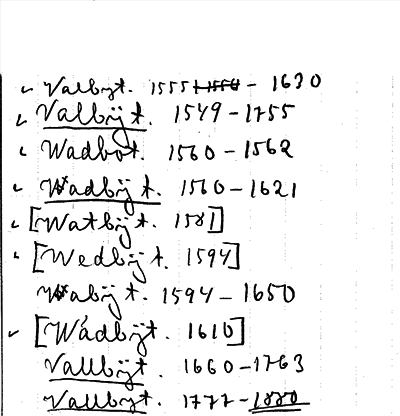 Valbyt. 1555 - 1630
Valbÿt. 1549-1755
Wadbot. 1560-1562
Wadbÿt. 1560-1621
[Watbÿt. 1581]
[Wedbÿt. 1594]
Wabÿt. 1594-1650
[Wådbÿt. 1610]
Vallbÿt. 1660-1763
Vallbyt. 1777-1880